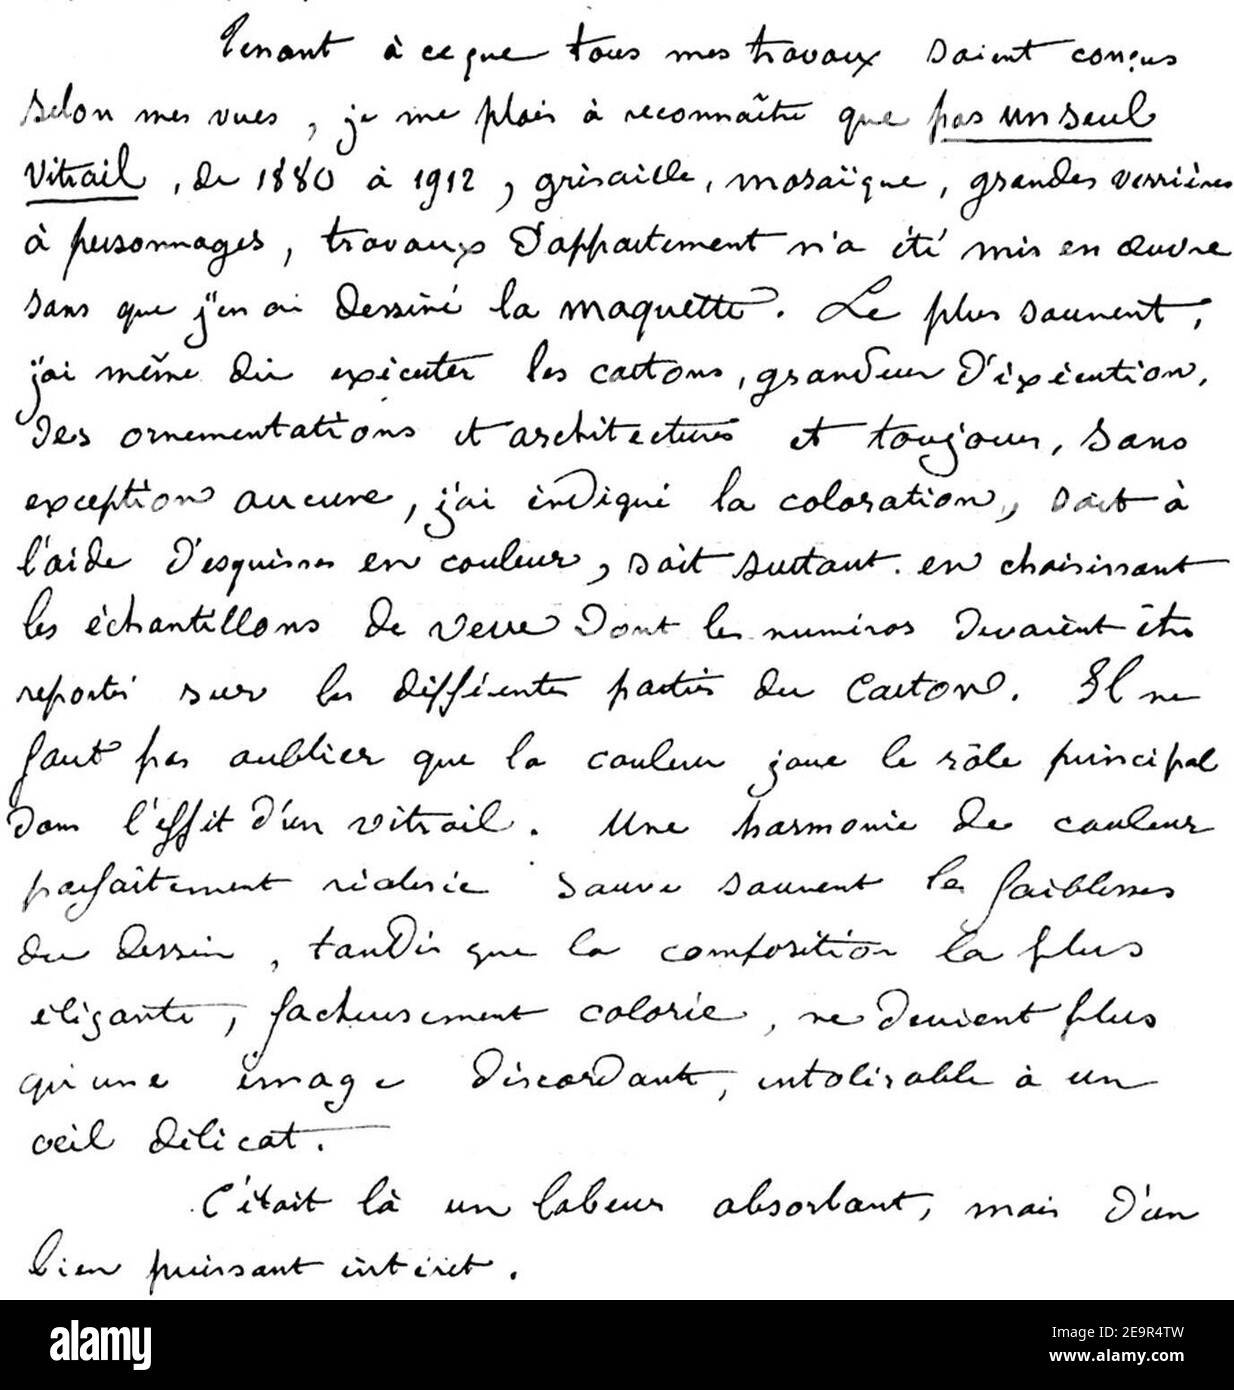 Tenant à ce que tous mes travaux soient conçus
selon mes vues, je me plais à reconnaître que pas un seul
vitrail, de 1880 à 1912, grisaille, mosaïque, grandes verrières
à personnages, travaux d'appartement n'a été mis en œuvre
sans que j'en ai dessiné la maquette. Le plus souvent,
j'ai même dû exécuter les cartons, grandeur d'exécution,
des ornementations et architectures et toujours, sans
exception aucune, j'ai indiqué la coloration, soit à
l'aide d'esquisses en couleur, soit surtout en choisissant
les échantillons de verre dont les numéros devaient être
reportés sur les différentes parties du carton. Il ne
faut pas oublier que la couleur joue le rôle principal
dans l'effet d'un vitrail. Une harmonie de couleur
parfaitement réalisée sauve souvent les faiblesses
du dessin, tandis que la composition la plus
élégante, facheusement colorié, ne devient plus
qu'une image discordante, intolérable à un
œil délicat.
C'était là un labeur absorbant, mais d'un
bien puissant intérêt.
alamy
Image ID: 2E9R4TW
www.alamy.com